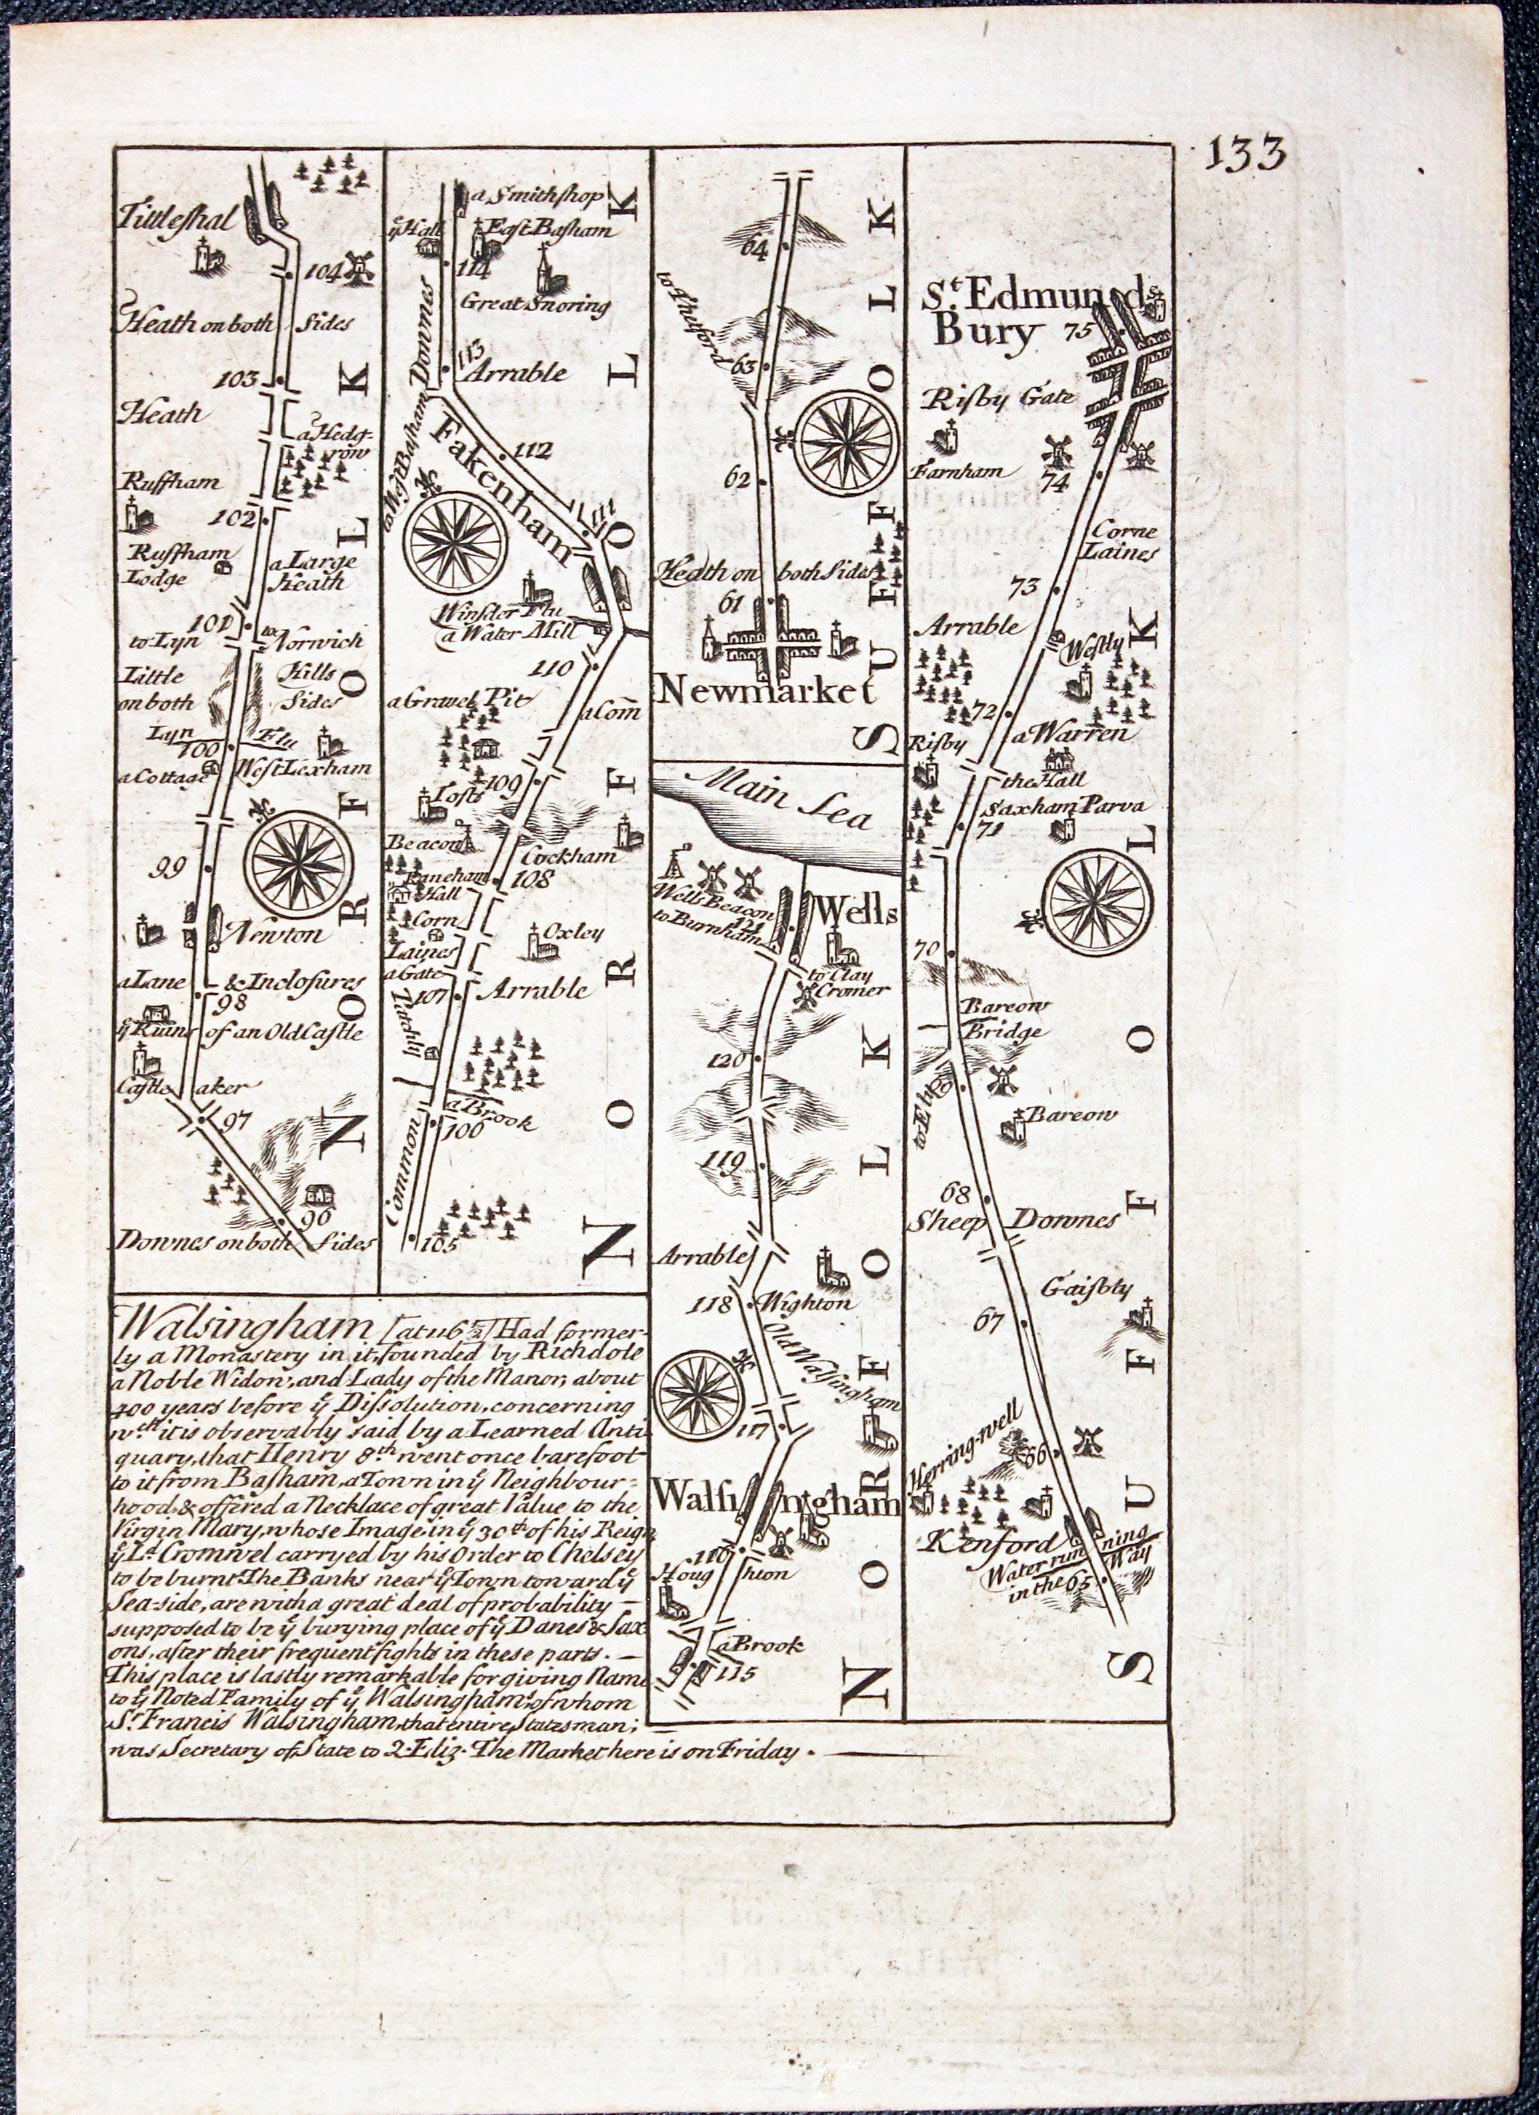 133
Tittleſhal
104
Heath on both Sides
103
Heath
a Hedg-
row
Ruſſham
102
Ruſſham
Lodge
a Large
Heath
101
to Lyn
to Norwich
Little Hills
on both Sides
Lyn Flu
100
a Cottage
West Lexham
99
Newton
a Lane & Inclosures
98
yͤ Ruins of an Old Castle
Castle aker
97
96
Downes on both Sides
NORFOLK
a Smithshop
yͤ Hall
East Basham
114
Great Snoring
Downes
113
Arrable
to West Basham
112
Fakenham
111
Winsder Flu
a Water Mill
110
a Gravel Pit
a Com̄
109
Lofts
Beacon
Cockham
Raneham
Hall
108
Corn
Laines
Oxley
a Gate
107
Arrable
Titchly
a Brook
106
Common
105
NORFOLK
64
to Thetford
63
62
Heath on both Sides
61
Newmarket
SUFFOLK
Main Sea
Wells Beacon
121
Wells
to Burnham
to Clay
Cromer
120
119
Arrable
118
Wighton
Old Walsingham
117
Walsingham
116
Houghton
a Brook
115
NORFOLK
Sᵗ. Edmunds
Bury
75
Risby Gate
Farnham
74
Corne
Laines
73
Arrable
Westly
72
Risby
a Warren
the Hall
Saxham Parva
71
70
Bareow
Bridge
to Ely
69
Bareow
68
Sheep Downes
Gaisbty
67
Herring-well
66
Kenford
Water running
in the Way
65
SUFFOLK
Walsingham [at 116 ½] Had former-
ly a Monastery in it, founded by Richdole
a Noble Widow, and Lady of the Manor, about
400 years before yͤ Dissolution, concerning
wᶜʰ it is observably said by a Learned Anti
quary, that Henry 8ᵗʰ went once barefoot
to it from Basham, a Town in yͤ Neighbour=
hood, & offered a Necklace of great Value to the
Virgin Mary, whose Image in yͤ 30ᵗʰ of his Reign
yͤ Lᵈ Cromwel carryed by his Order to Chelsey
to be burnt. The Banks near yͤ Town toward yͤ
Sea-side, are with a great deal of probability —
supposed to be yͤ burying place of yͤ Danes & Sax
ons, after their frequent fights in these parts. —
This place is lastly remarkable for giving Name
to yͤ Noted Family of yͤ Walsinghams, of whom
Sʳ. Francis Walsingham, that entire Statesman;
was Secretary of State to Q. Eliz. The Market here is on Friday.